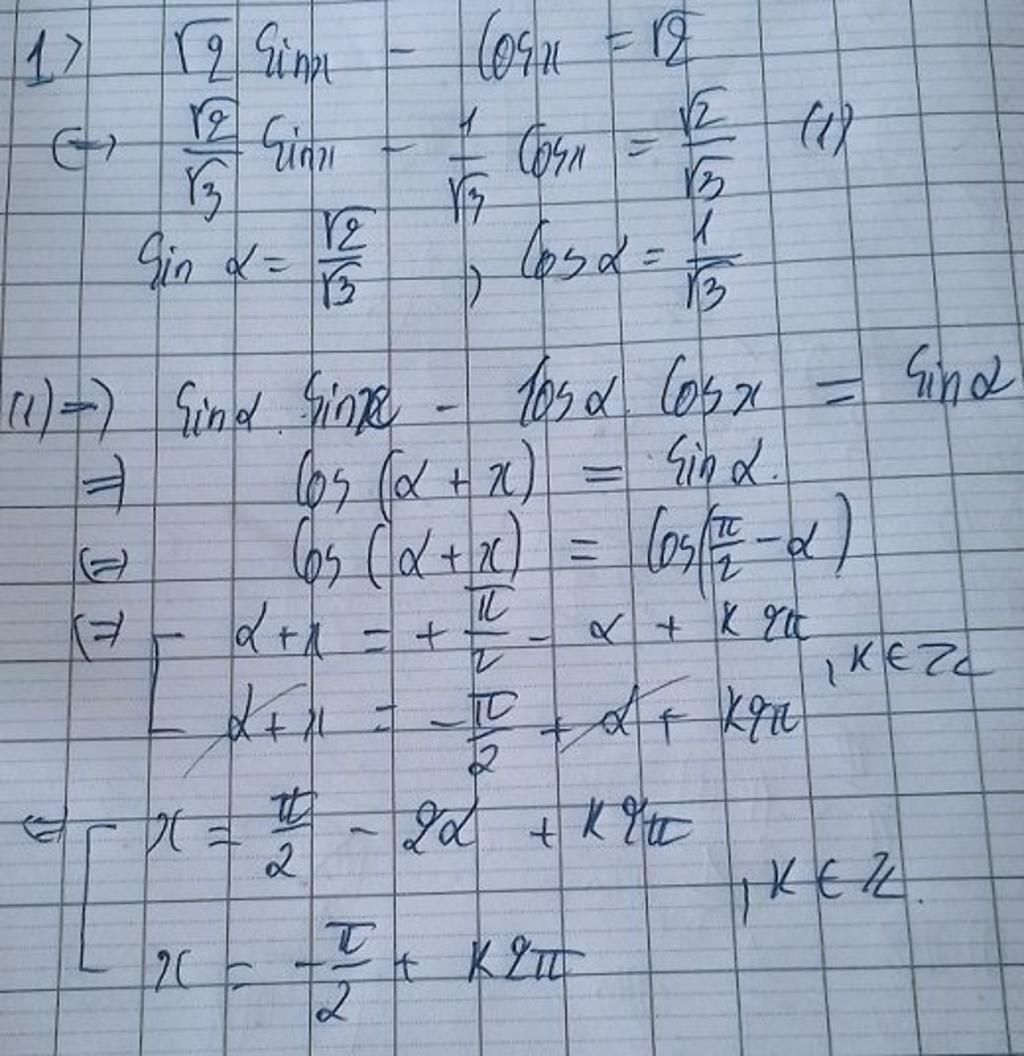 1> √2 Sinx - Cosx = √2
<=> √2/√3 Sinx - 1/√3 Cosx = √2/√3 (1)
Sin α = √2/√3 , Cosα = 1/√3
(1) => Sinα. Sinx - Cosα. Cosx = Sinα
=> Cos (α + x) = Sinα.
<=> Cos (α + x) = Cos(π/2 - α)
<=> [ α + x = + π/2 - α + k2π
, k ∈ Z
α + x = - π/2 + α + k2π
<=> [ x = π/2 - 2α + k2π
, k ∈ Z.
x = - π/2 + k2π